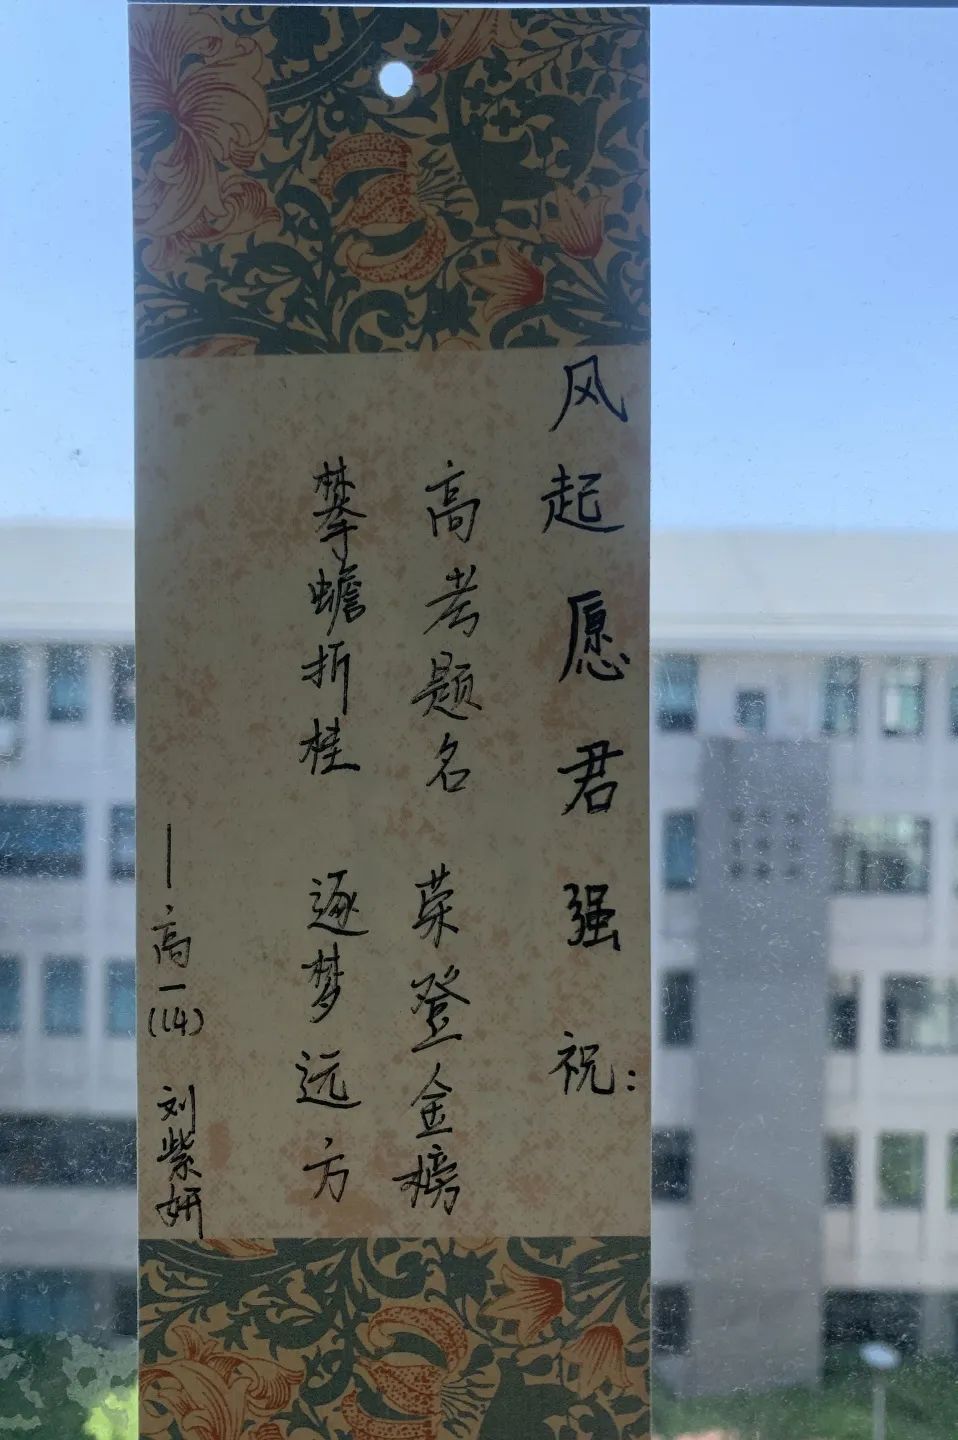 风起愿君强 祝：
高考题名 荣登金榜
攀蟾折桂 逐梦远方
——高一(14) 刘紫妍